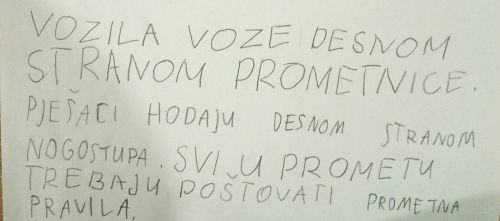 VOZILA VOZE DESNOM
STRANOM PROMETNICE.
PJEŠACI HODAJU DESNOM STRANOM
NOGOSTUPA. SVI U PROMETU
TREBAJU POŠTOVATI PROMETNA
PRAVILA.